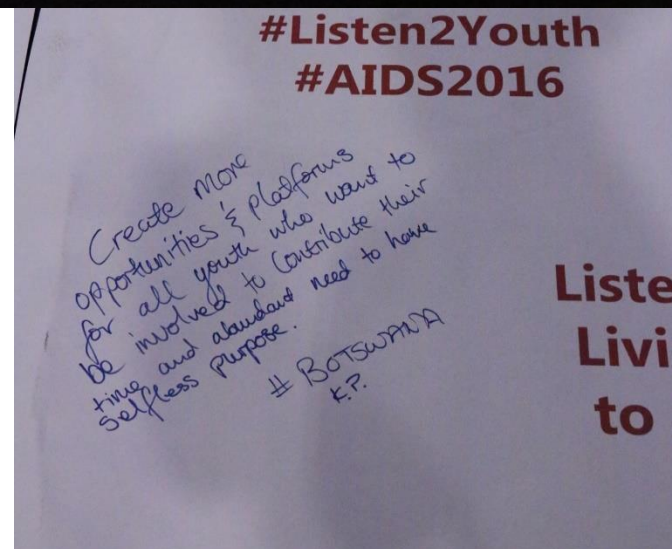 #Listen2Youth
#AIDS2016
Create More
opportunities & platforms
for all youth who want to
be involved to contribute their
time and abundant need to have
selfless purpose.
# BOTSWANA
K.P.
Liste
Livi
to